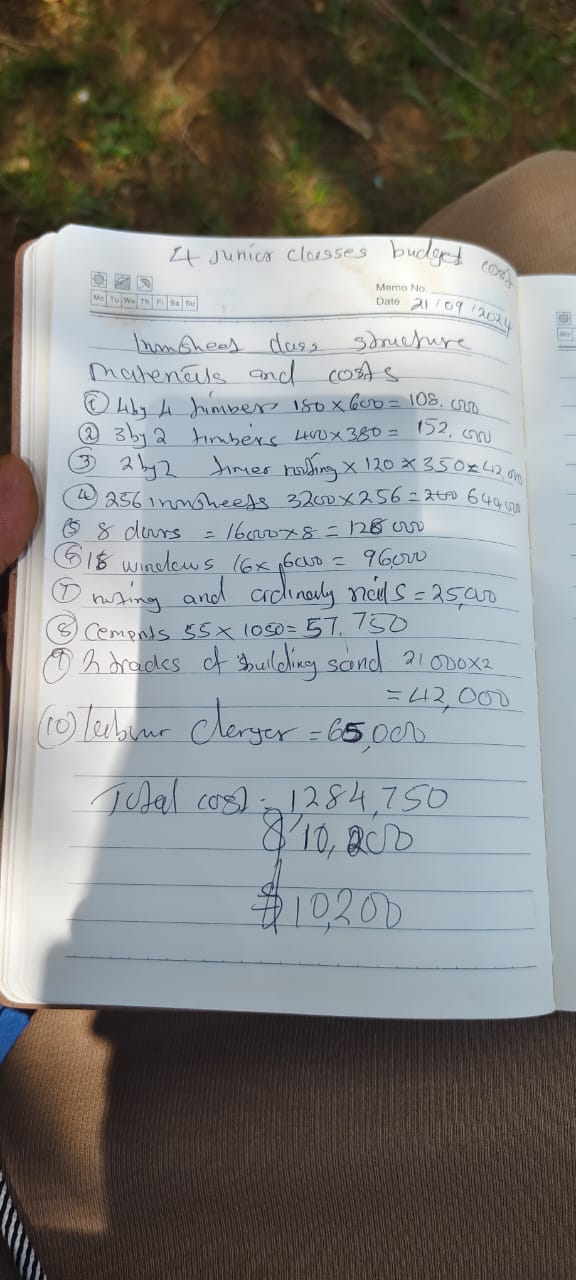 4 Junior classes budget cost
Mo Tu We Th Fr Sa Su
Memo No.
Date 21/09/2024
Ironsheet class structure
Materials and costs
① 4by 4 timber 180 x 600 = 108,000
② 3by 2 timbers 400 x 380 = 152,000
③ 2by2 timer roofing x 120 x 350 = 42,000
④ 256 ironsheets 3200 x 256 = 640,000
⑤ 8 doors = 16000 x 8 = 128000
⑥ windows 16 x 6000 = 96,000
⑦ roofing and ordinary nails = 25,000
⑧ Cements 55 x 1050 = 57,750
⑨ 2 of building sand 21000x2
= 42,000
⑩ labour = 65,000
Total cost = 1284,750
$ 10,200
$ 10,200